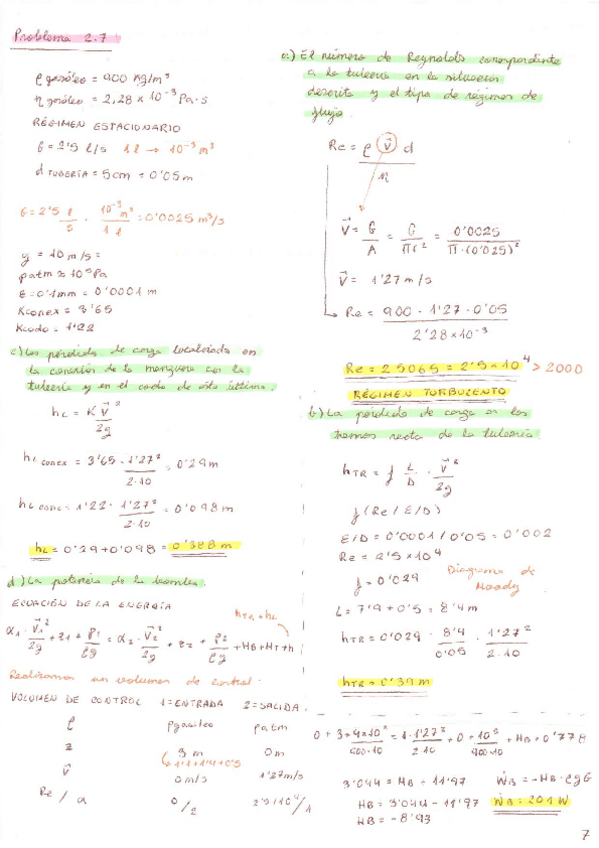 Problema 2.7
ρ gasóleo = 900 kg/m³
η gasóleo = 2,28 × 10⁻³ Pa·s
RÉGIMEN ESTACIONARIO
G = 2'5 l/s 1 l → 10⁻³ m³
d TUBERÍA = 5cm = 0'05m
G = 2'5 l/s · 10⁻³ m³/1 l = 0'0025 m³/s
g = 10 m/s =
patm ≈ 10⁵ Pa
ε = 0'1mm = 0'0001 m
Kconex = 3'65
Kcodo = 1'22
c) Las pérdidas de carga localizadas en
la conexión de la manguera con la
tubería y en el codo de esta última.
hL = K v̄²/2g
hL conex = 3'65 · 1'27²/2·10 = 0'29m
= 1'22 · 1'27²/2·10 = 0'098m
hL = 0'29 + 0'098 = 0'388 m
d) La potencia de la bomba.
ECUACIÓN DE LA ENERGÍA
hTR + hL
α1 · v̄1²/2g + z1 + p1/ρg = α2 · v̄2²/2g + z2 + p2/ρg + HB + HT + h
Realizamos un volumen de control.
VOLUMEN DE CONTROL 1=ENTRADA 2=SALIDA.
patm
z 3 m 0m
v̄ 0 m/s 1'27m/s
Re / α 0/2
a) El número de Reynolds correspondiente
a la tubería en la situación
descrita y el tipo de régimen de
flujo.
Re = ρ v̄ d/η
v̄ = G/A = G/πr² = 0'0025/π·(0'025)²
v̄ = 1'27 m/s
Re = 900 · 1'27 · 0'05/2'28×10⁻³
Re = 25065 = 2'5×10⁴ > 2000
RÉGIMEN TURBULENTO
b) La pérdida de carga en los
tramos recta de la tubería
hTR = f · L/D · v̄²/2g
f (Re / E/D)
E/D = 0'0001 / 0'05 = 0'002
Re = 2'5×10⁴
f = 0'029 Diagrama de
Moody
L = 7'9 + 0'5 = 8'4 m
hTR = 0'029 · 8'4/0'05 · 1'27²/2·10
hTR = 0'39 m
= 1 · 1'27²/2·10 + 0 + + HB + 0'778
3'044 = HB + 11'97 ẆB = -HB·ρgG
HB = 3'044 - 11'97 ẆB = 201 W
HB = -8'93
7